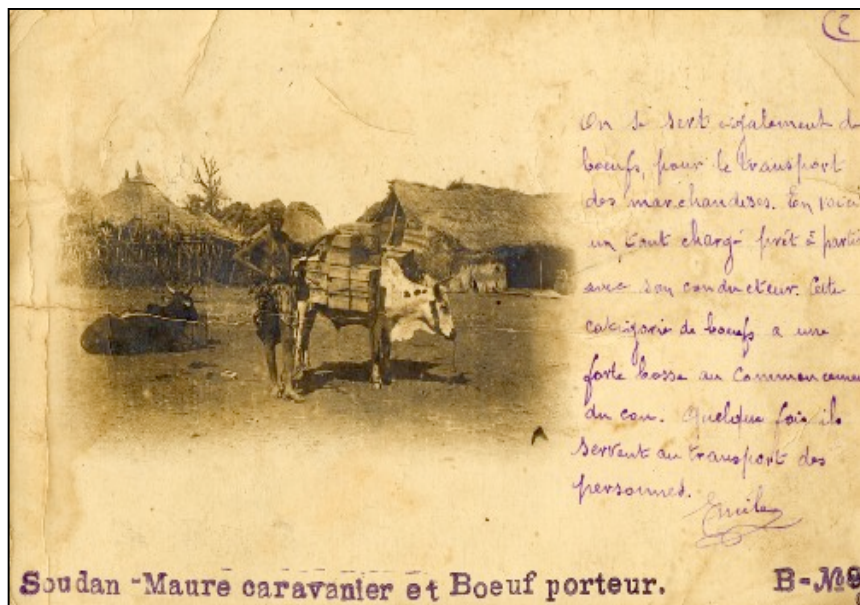 2
On se sert également de
boeufs, pour le transport
des marchandises. En voici
un tout chargé prêt à partir
avec son conducteur. Cette
catégorie de boeufs a une
forte bosse au commencement
du cou. Quelque fois ils
servent au transport des
personnes.
Emile
Soudan - Maure caravanier et Boeuf porteur.
B-№9